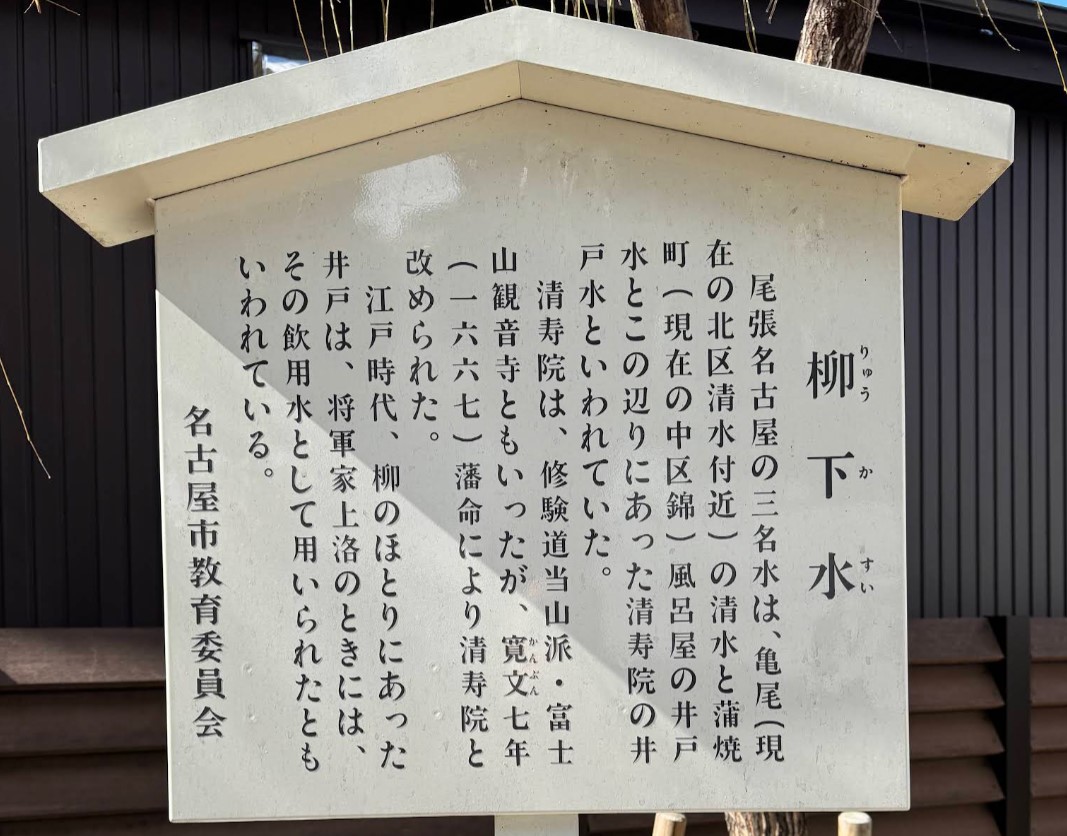 柳下水
りゅう か すい
尾張名古屋の三名水は、亀尾(現
在の北区清水付近)の清水と蒲焼
町(現在の中区錦)風呂屋の井戸
水とこの辺りにあった清寿院の井
戸水といわれていた。
清寿院は、修験道当山派・富士
山観音寺ともいったが、寛文七年
かんぶん
(一六六七)藩命により清寿院と
改められた。
江戸時代、柳のほとりにあった
井戸は、将軍家上洛のときには、
その飲用水として用いられたとも
いわれている。
名古屋市教育委員会